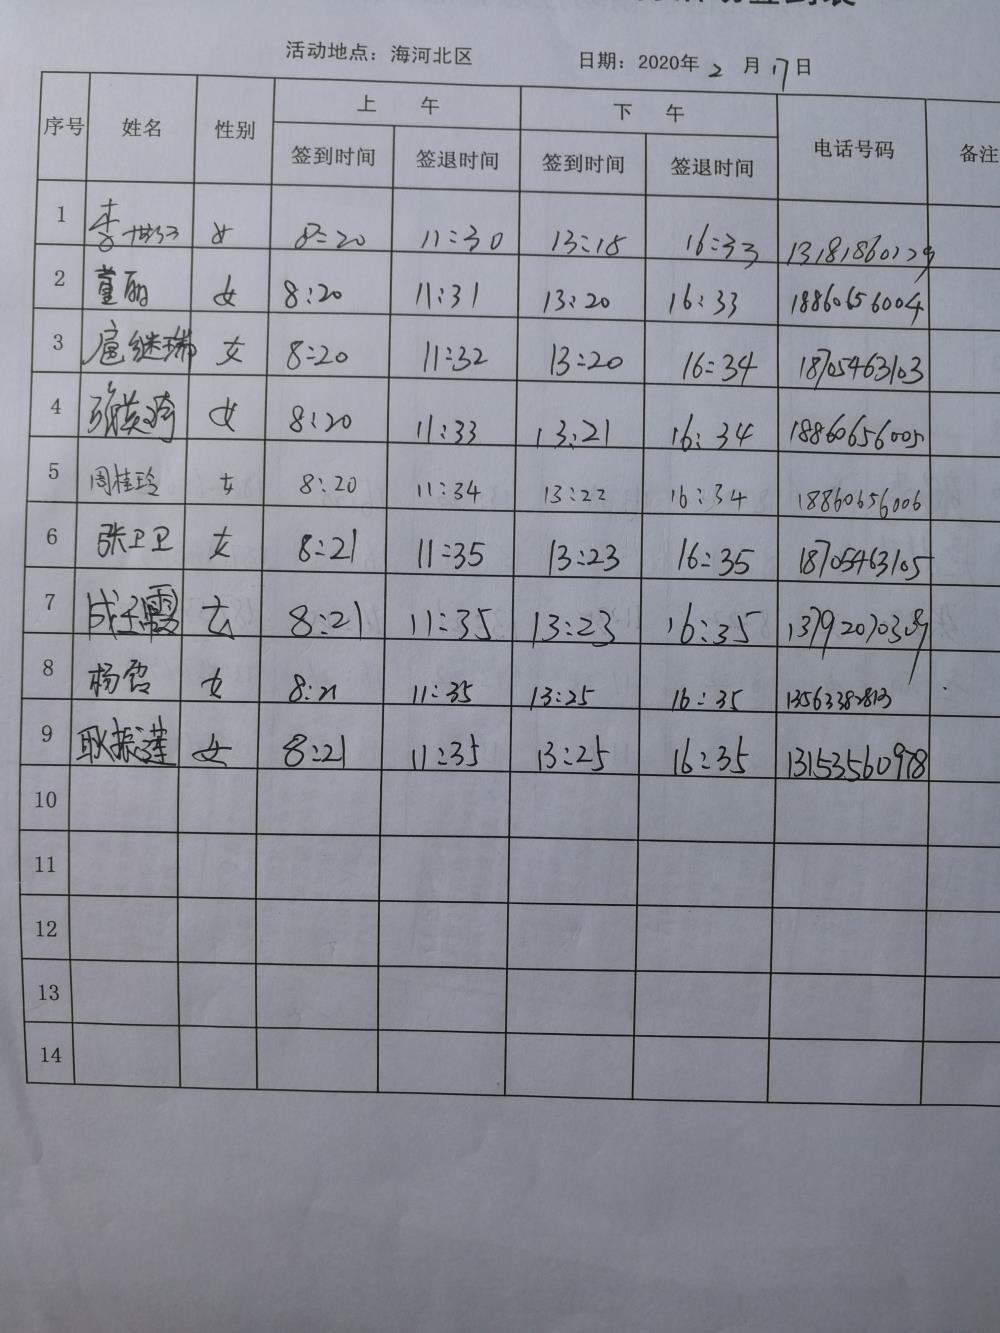 活动地点：海河北区 日期：2020年 2 月 17 日
序号 姓名 性别 上 午 下 午 电话号码 备注
签到时间 签退时间 签到时间 签退时间
1 李 女 8:20 11:30 13:18 16:33
2 董丽 女 8:20 11:31 13:20 16:33 18860656004
3 扈继瑞 女 8:20 11:32 13:20 16:34 18705463103
4 张英琦 女 8:20 11:33 13:21 16:34 18860656005
5 周桂玲 女 8:20 11:34 13:22 16:34 18860656006
6 张卫卫 女 8:21 11:35 13:23 16:35 18705463105
7 成玉霞 女 8:21 11:35 13:23 16:35 13792070389
8 杨霞 女 8:21 11:35 13:25 16:35 13563382813
9 耿振莲 女 8:21 11:35 13:25 16:35 13153560978
10
11
12
13
14